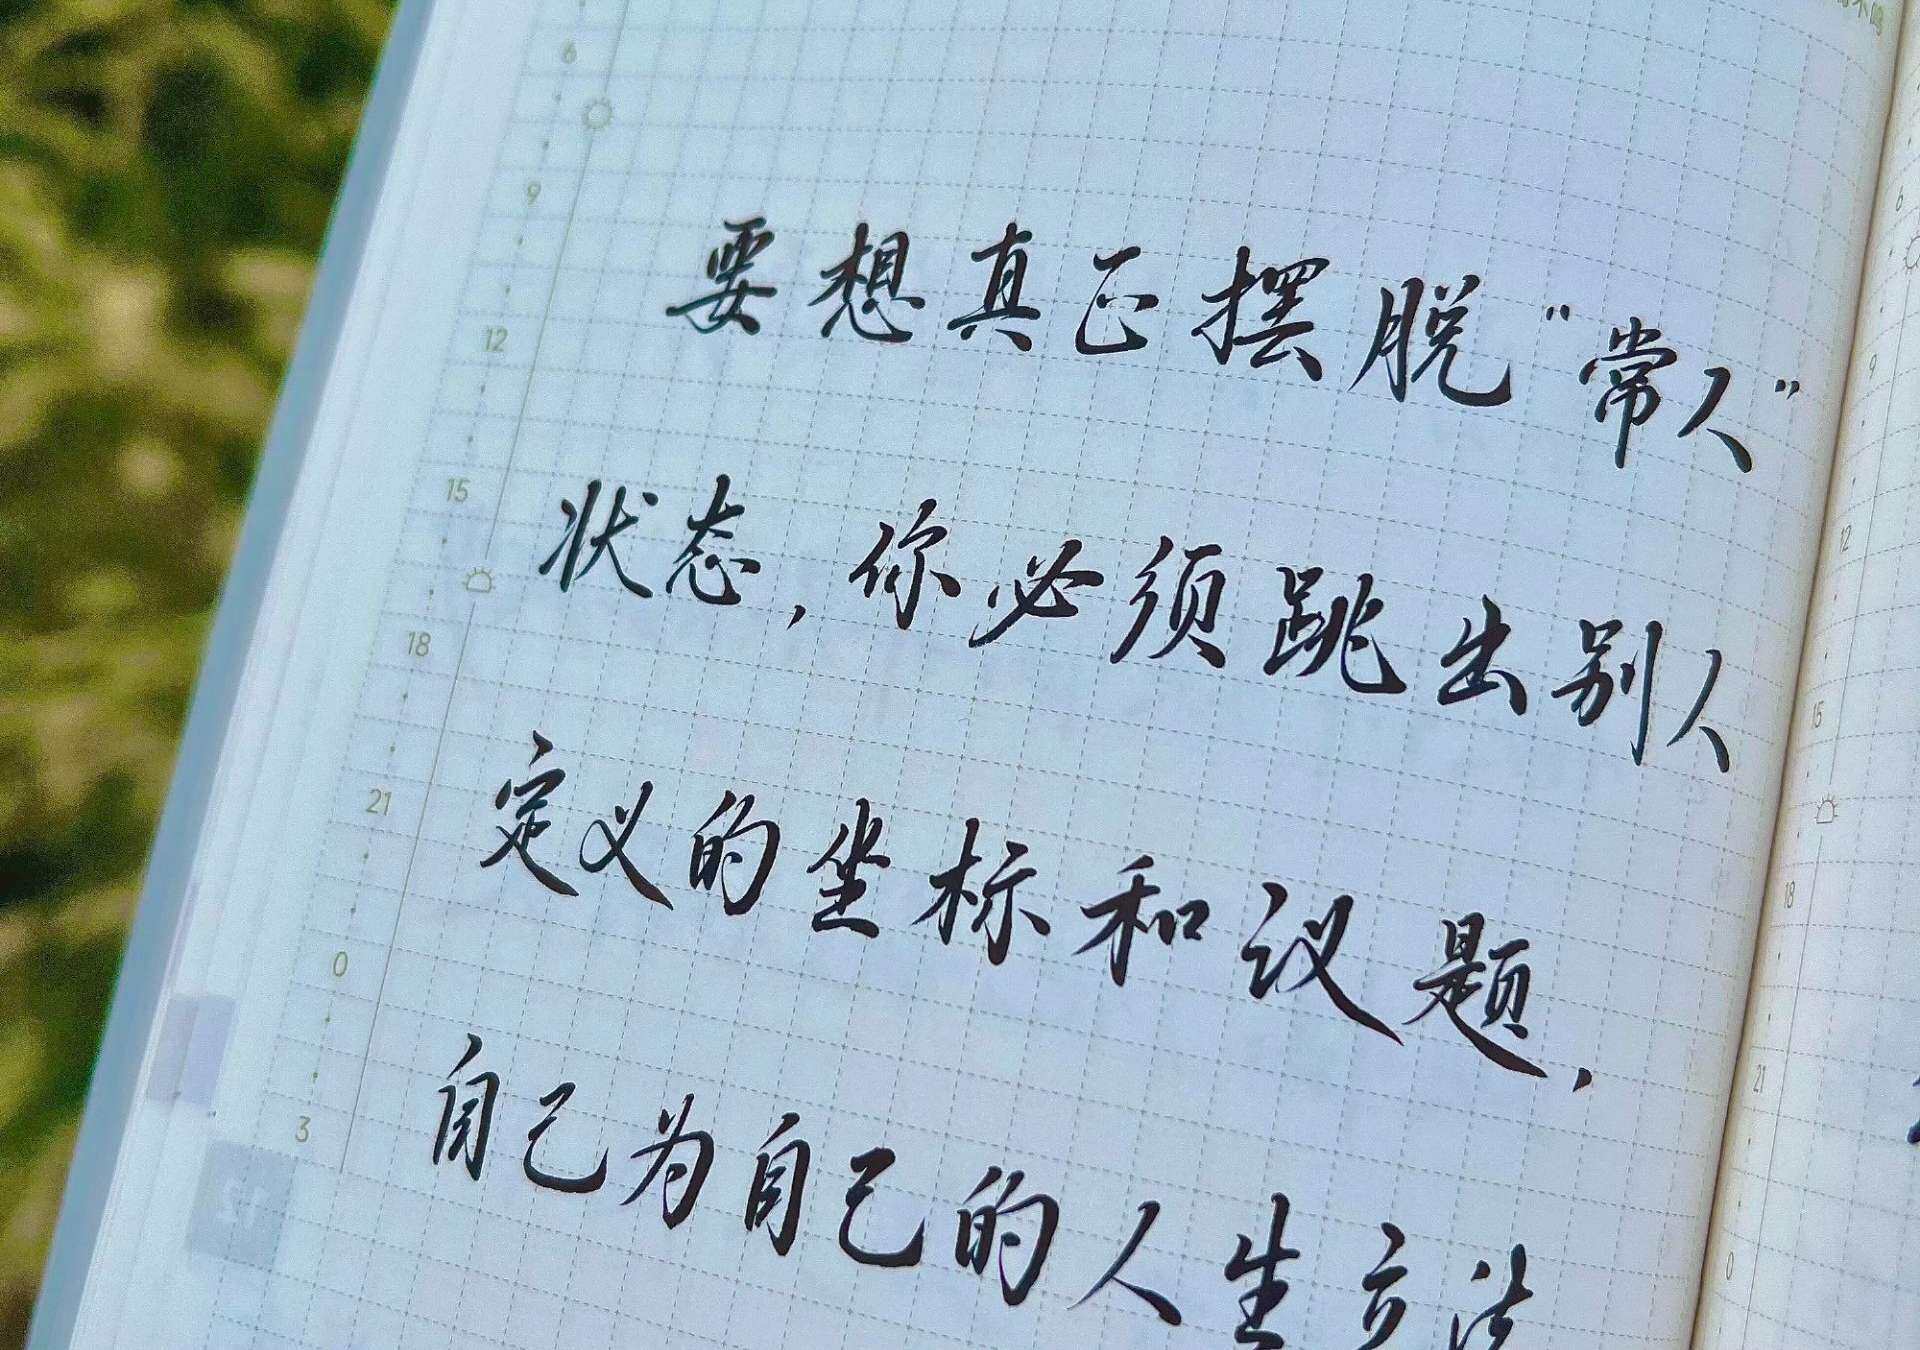 要想真正摆脱“常人”
状态，你必须跳出别人
定义的坐标和议题，
自己为自己的人生立法
6
9
12
15
18
21
0
3
6
9
12
15
18
21
0
12